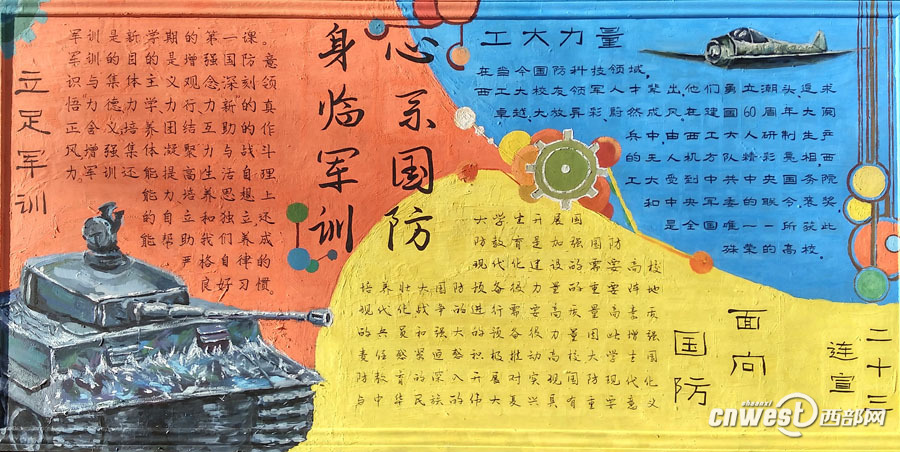 立足军训
军训是新学期的第一课。
军训的目的是增强国防意
识与集体主义观念深刻领
悟力德力学、力行、力新的真
正含义培养团结互助的作
风增强集体凝聚力与战斗
力。军训还能提高生活自理
能力培养思想上
的自立和独立还
能帮助我们养成
严格自律的
良好习惯。
心系国防
身临军训
工大力量
在当今国防科技领域,
西工大校友领军人才辈出,他们勇立潮头,追求
卓越,大放异彩,蔚然成风,在建国60周年大阅
兵中,由西工大人研制生产
的无人机方队精彩亮相,西
工大受到中共中央国务院
和中央军委的联合表奖,
是全国唯一一所获此
殊荣的高校。
大学生开展国
防教育是加强国防
现代化建设的需要高校
培养壮大国防预备役力量的重要阵地
现代化战争的进行需要高质量高素质
的兵员和强大的预备役力量因此增强
责任感紧迫感积极推动高校大学生国
防教育的深入开展对实现国防现代化
与中华民族的伟大复兴具有重要意义
面向
国防
二十三
连宣
shaanxi
cnwest西部网